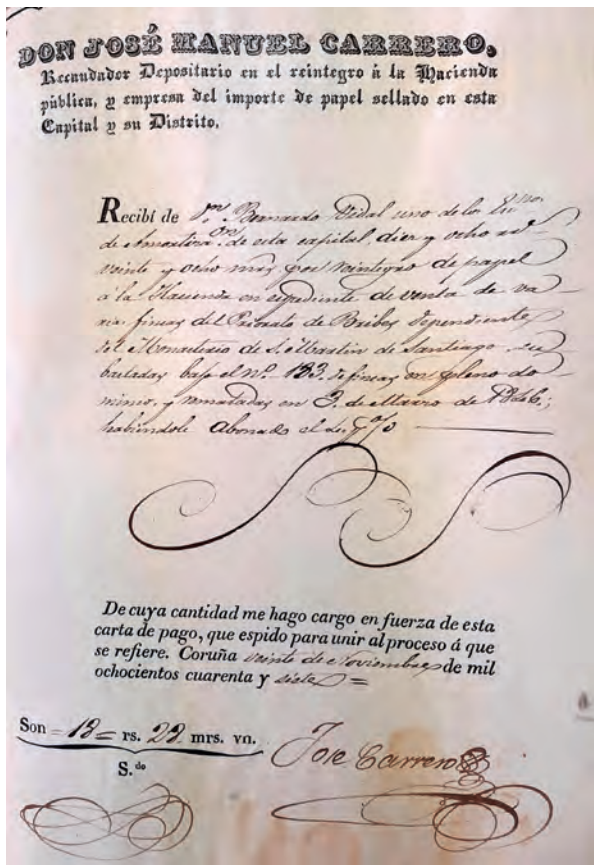 DON JOSÉ MANUEL CARRERO,
Recaudador Depositario en el reintegro á la Hacienda
pública, y empresa del importe de papel sellado en esta
Capital y su Distrito.
Recibí de Dn. Bernardo Vidal uno de los
de esta capital, diez y ocho
veinte y ocho mrs por reintegro de papel
á la Hacienda en espediente de venta de va
rias fincas del Priorato de Bribes dependiente
del Monasterio de S. Martin de Santiago su
bastadas bajo el nº 133. de fincas en pleno do
minio, y rematadas en 3. de Marzo de
habiendole abonado el
De cuya cantidad me hago cargo en fuerza de esta
carta de pago, que espido para unir al proceso á que
se refiere. Coruña veinte de Noviembre de mil
ochocientos cuarenta y siete =
Son = 18 = rs. 28 mrs. vn.
S.do
Jose Carrero